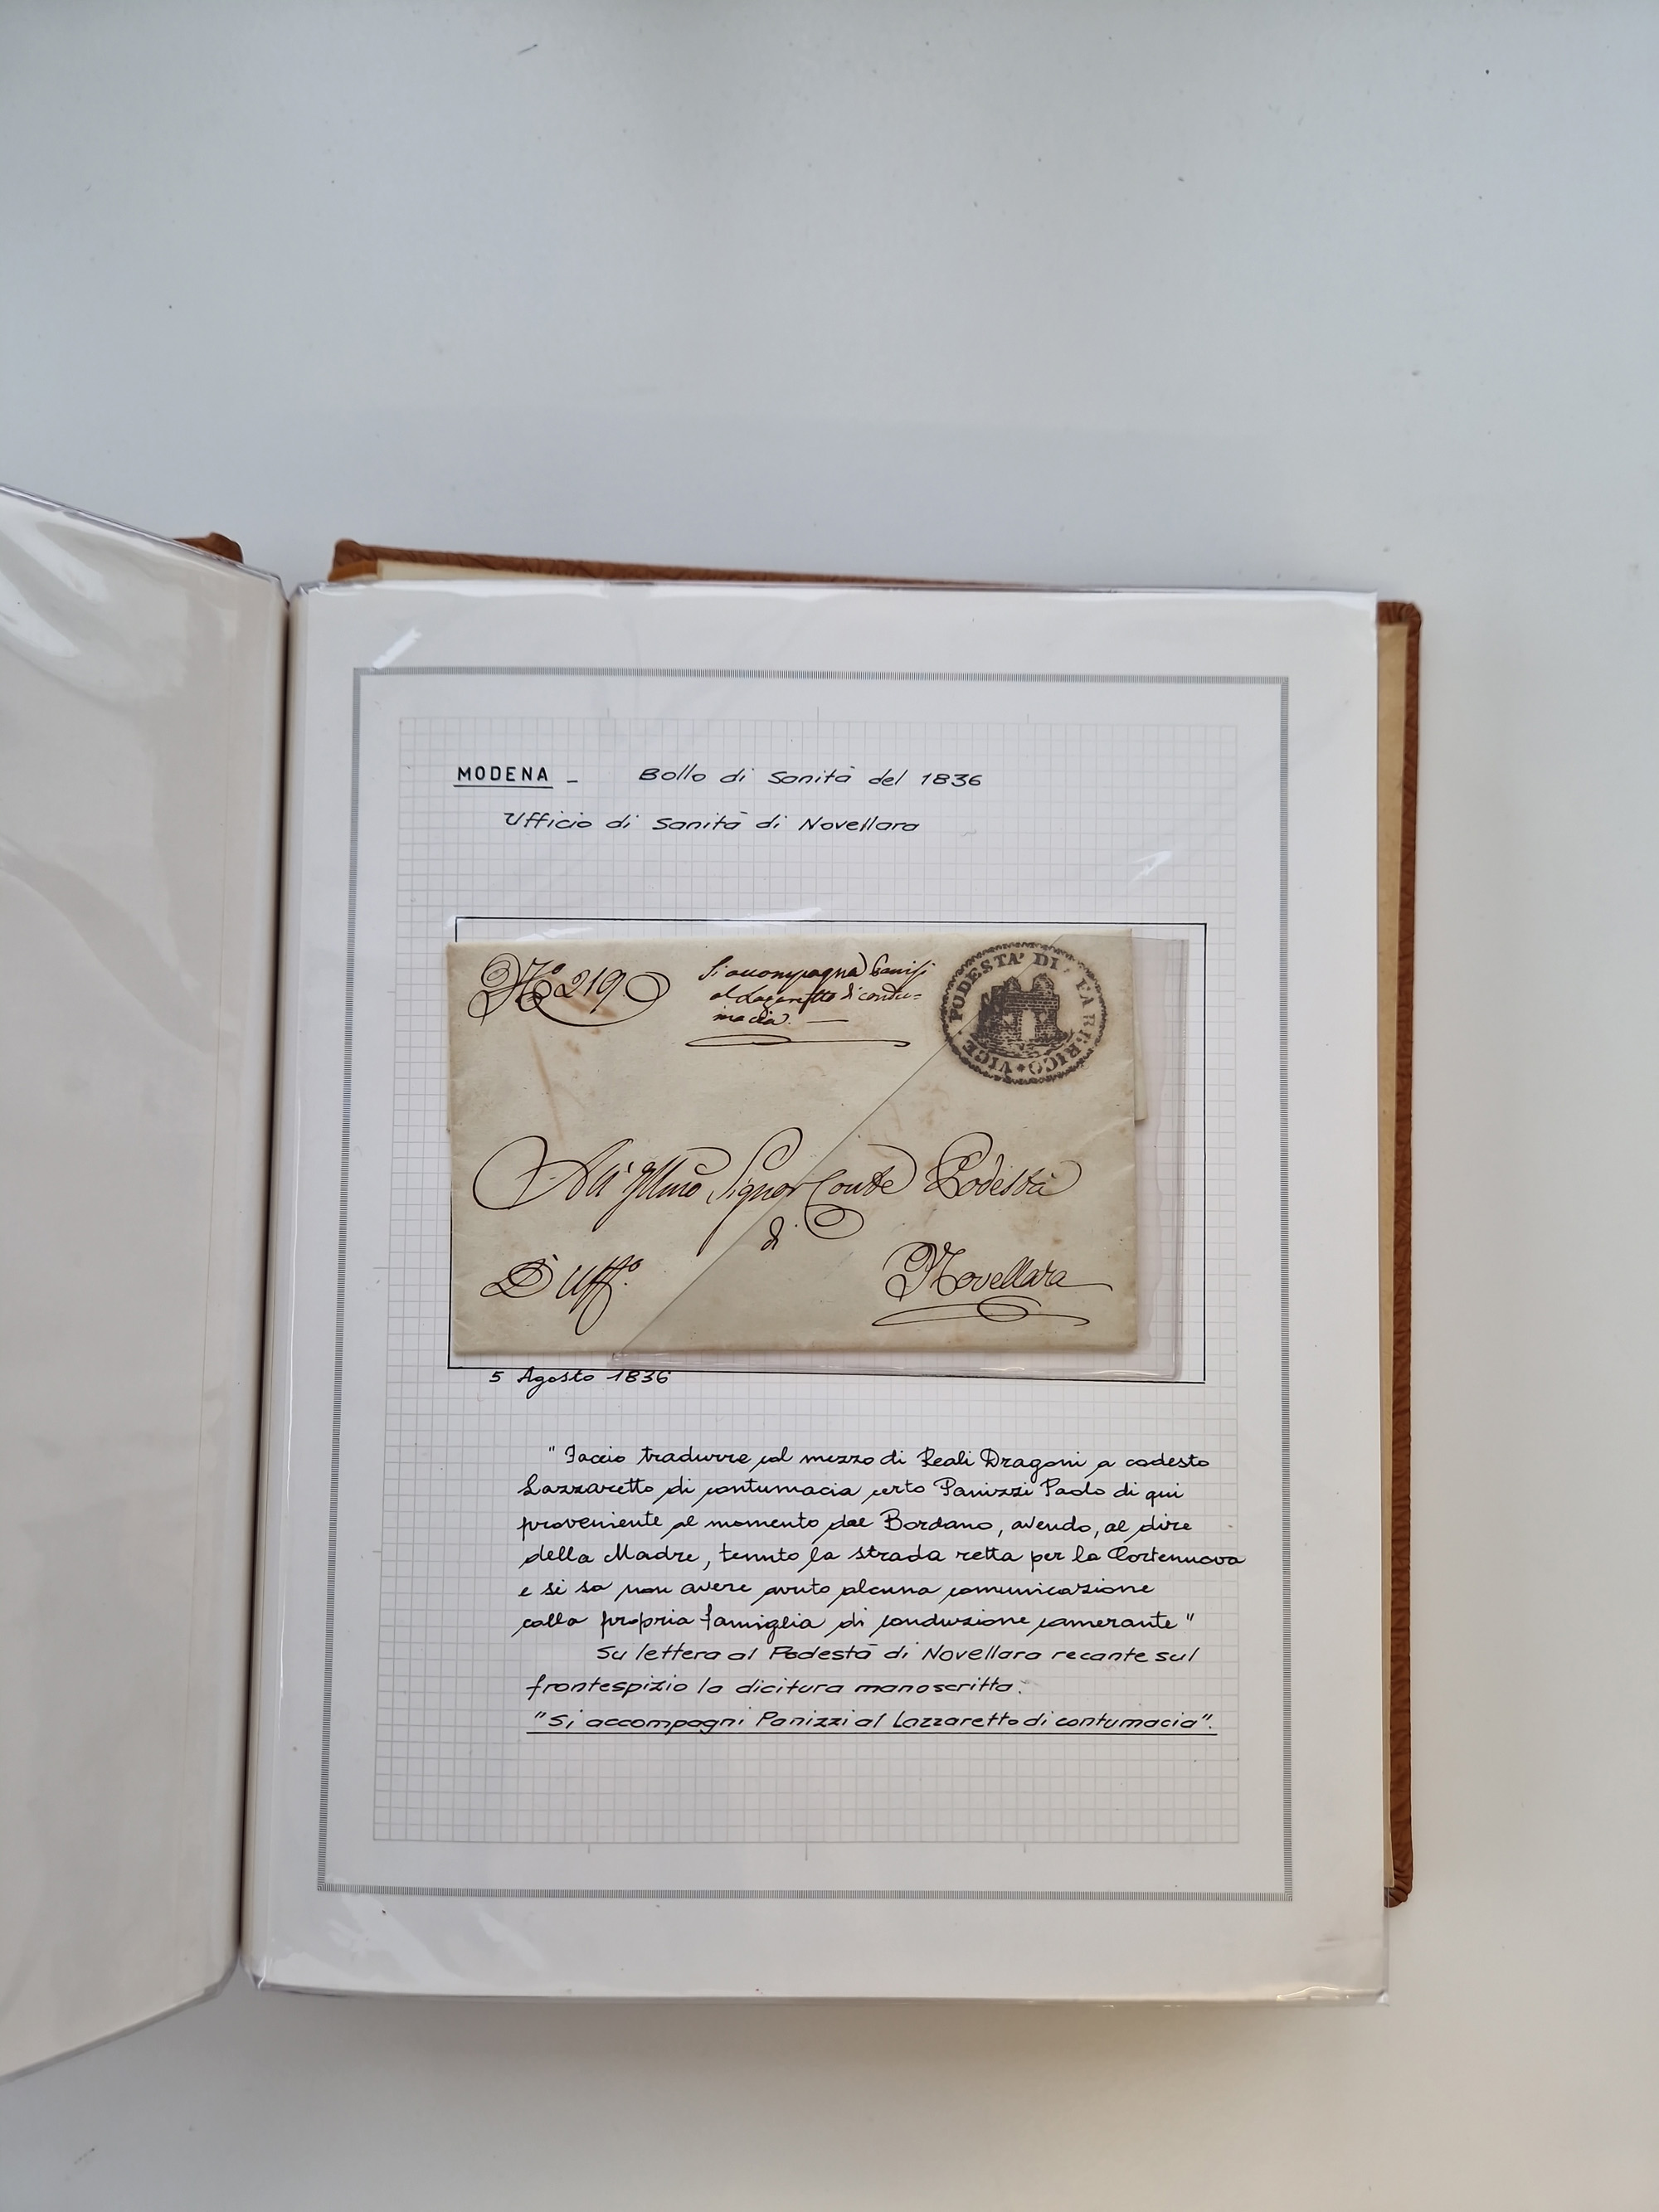 MODENA – Bollo di Sanità del 1836
Ufficio di Sanità di Novellara
N.° 219
Si accompagna
al Lazaretto di contu=
macia. —
PODESTA' DI VICE
All' Illmo Signor Conte Podestà
di
D' Uff.° Novellara
5 Agosto 1836
" Faccio tradurre col mezzo di Reali Dragoni a codesto
Lazzaretto di contumacia certo Panizzi Paolo di qui
proveniente al momento dal Bordano, avendo, al dire
della Madre, tenuto la strada retta per la Cortenuova
e si sa non avere avuto alcuna comunicazione
colla propria famiglia di conduzione camerante "
Su lettera al Podestà di Novellara recante sul
frontespizio la dicitura manoscritta:
"Si accompagni Panizzi al Lazzaretto di contumacia".